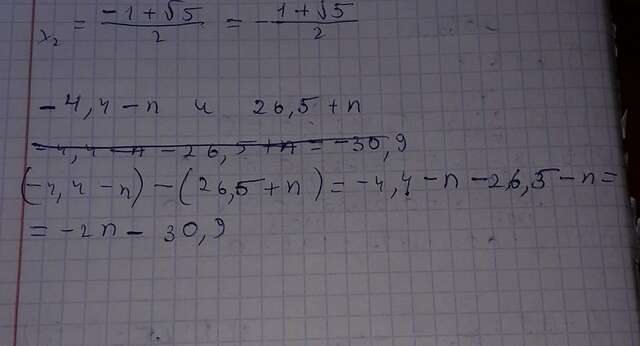 x₂ = (-1+√5)/2 = -(1+√5)/2
-4,4-n и 26,5+n
-4,4-n-26,5+n=-30,9
(-4,4-n)-(26,5+n)=-4,4-n-26,5-n=
=-2n-30,9